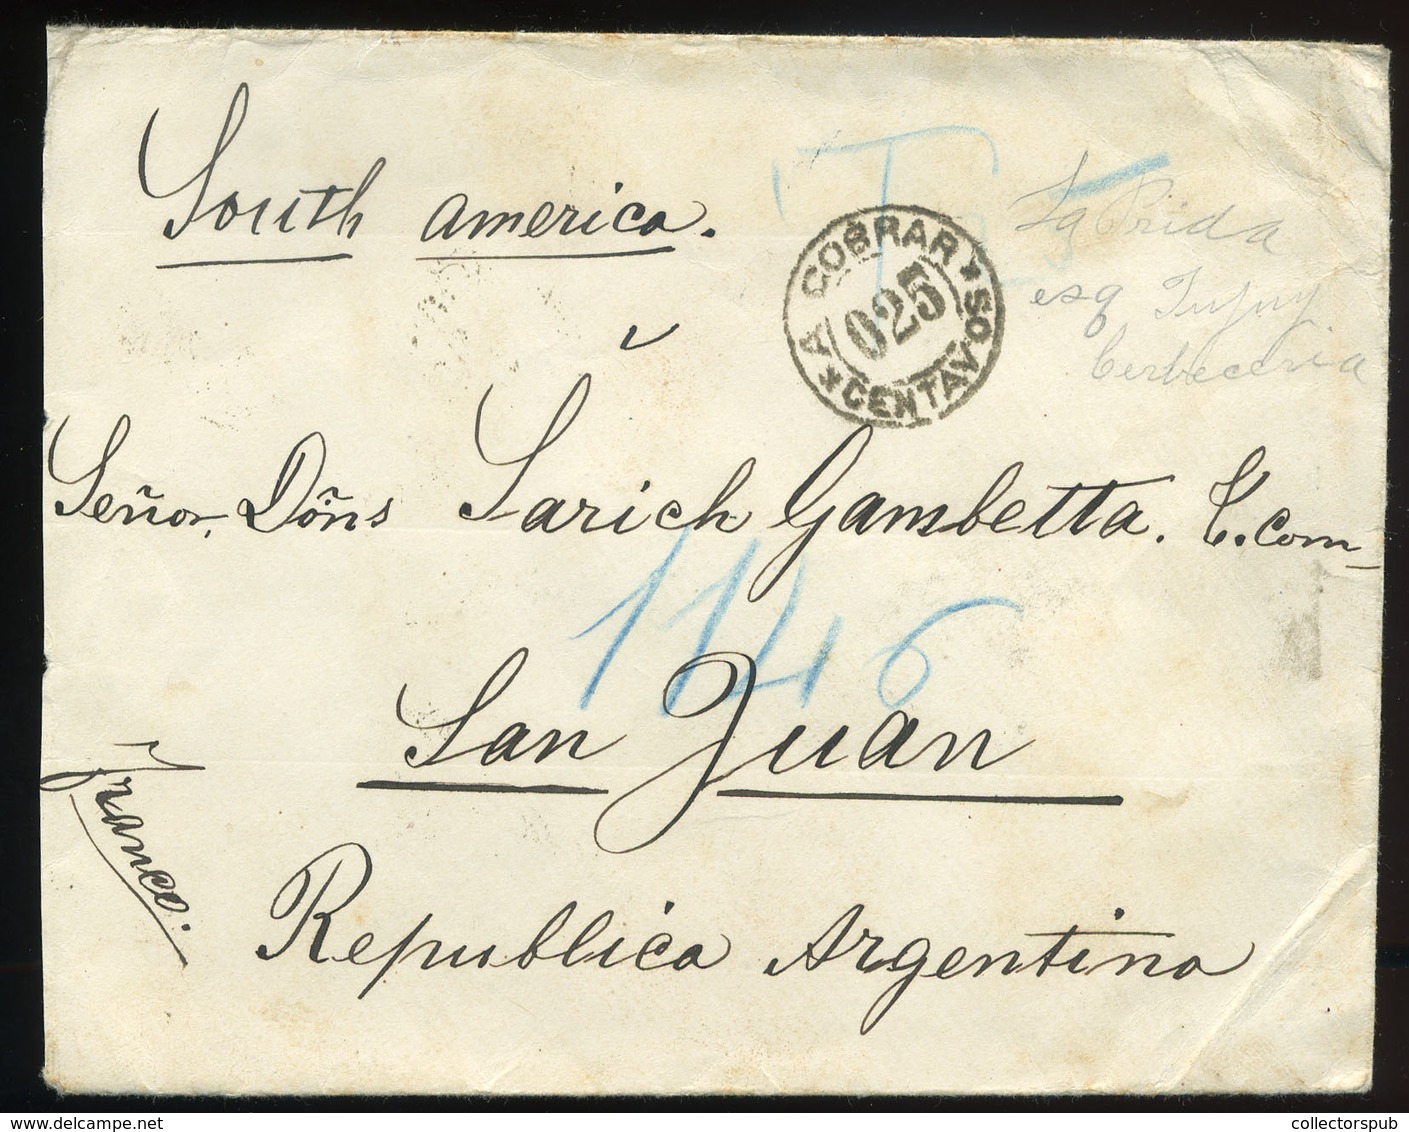 South america.
T 25
A COBRAR * CENTAVOS *
025
La Prida
esq Jujuy
Cerbeceria
Señor, Doñs Sarich Gambetta. C. Com-
1146
San Juan
Franco.
Republica Argentina
collectorspub.com